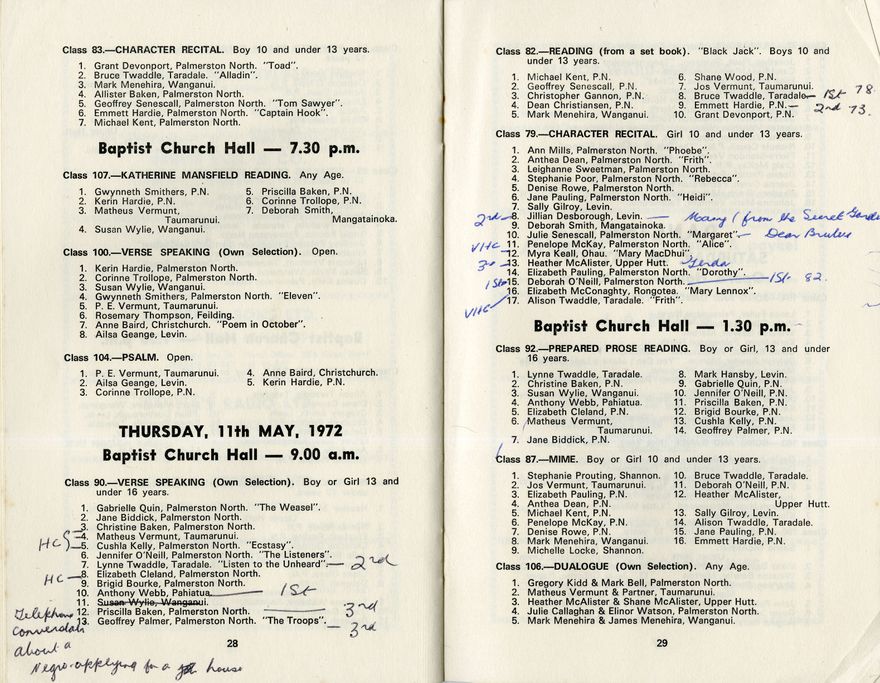 Class 83.—CHARACTER RECITAL. Boy 10 and under 13 years.
1. Grant Devonport, Palmerston North. "Toad".
2. Bruce Twaddle, Taradale. "Alladin".
3. Mark Menehira, Wanganui.
4. Allister Baken, Palmerston North.
5. Geoffrey Senescall, Palmerston North. "Tom Sawyer".
6. Emmett Hardie, Palmerston North. "Captain Hook".
7. Michael Kent, Palmerston North.
Baptist Church Hall — 7.30 p.m.
Class 107.—KATHERINE MANSFIELD READING. Any Age.
1. Gwynneth Smithers, P.N.
2. Kerin Hardie, P.N.
3. Matheus Vermunt,
Taumarunui.
4. Susan Wylie, Wanganui.
5. Priscilla Baken, P.N.
6. Corinne Trollope, P.N.
7. Deborah Smith,
Mangatainoka.
Class 100.—VERSE SPEAKING (Own Selection). Open.
1. Kerin Hardie, Palmerston North.
2. Corinne Trollope, Palmerston North.
3. Susan Wylie, Wanganui.
4. Gwynneth Smithers, Palmerston North. "Eleven".
5. P. E. Vermunt, Taumarunui.
6. Rosemary Thompson, Feilding.
7. Anne Baird, Christchurch. "Poem in October".
8. Ailsa Geange, Levin.
Class 104.—PSALM. Open.
1. P. E. Vermunt, Taumarunui.
2. Ailsa Geange, Levin.
3. Corinne Trollope, P.N.
4. Anne Baird, Christchurch.
5. Kerin Hardie, P.N.
THURSDAY, 11th MAY, 1972
Baptist Church Hall — 9.00 a.m.
Class 90.—VERSE SPEAKING (Own Selection). Boy or Girl 13 and
under 16 years.
1. Gabrielle Quin, Palmerston North. "The Weasel".
2. Jane Biddick, Palmerston North.
3. Christine Baken, Palmerston North.
4. Matheus Vermunt, Taumarunui.
HC 5. Cushla Kelly, Palmerston North. "Ecstasy".
6. Jennifer O'Neill, Palmerston North. "The Listeners".
7. Lynne Twaddle, Taradale. "Listen to the Unheard". — 2nd
HC — 8. Elizabeth Cleland, Palmerston North.
9. Brigid Bourke, Palmerston North.
10. Anthony Webb, Pahiatua. — 1st
11. Susan Wylie, Wanganui.
12. Priscilla Baken, Palmerston North. — 3rd
13. Geoffrey Palmer, Palmerston North. "The Troops". — 3rd
Telephone
conversation
about a
Negro applying for a house
28
Class 82.—READING (from a set book). "Black Jack". Boys 10 and
under 13 years.
1. Michael Kent, P.N.
2. Geoffrey Senescall, P.N.
3. Christopher Gannon, P.N.
4. Dean Christiansen, P.N.
5. Mark Menehira, Wanganui.
6. Shane Wood, P.N.
7. Jos Vermunt, Taumarunui.
8. Bruce Twaddle, Taradale — 1st 78.
9. Emmett Hardie, P.N. — 2nd 73.
10. Grant Devonport, P.N.
Class 79.—CHARACTER RECITAL. Girl 10 and under 13 years.
1. Ann Mills, Palmerston North. "Phoebe".
2. Anthea Dean, Palmerston North. "Frith".
3. Leighanne Sweetman, Palmerston North.
4. Stephanie Poor, Palmerston North. "Rebecca".
5. Denise Rowe, Palmerston North.
6. Jane Pauling, Palmerston North. "Heidi".
7. Sally Gilroy, Levin.
2nd 8. Jillian Desborough, Levin. — Mary (from the Secret Garde
9. Deborah Smith, Mangatainoka.
10. Julie Senescall, Palmerston North. "Margaret" — Dear Brutus
VHC 11. Penelope McKay, Palmerston North. "Alice".
12. Myra Keall, Ohau. "Mary MacDhui".
3rd 13. Heather McAlister, Upper Hutt. Gerda
14. Elizabeth Pauling, Palmerston North. "Dorothy".
1st 15. Deborah O'Neill, Palmerston North. — 1st 82.
16. Elizabeth McConaghty, Rongotea. "Mary Lennox".
VHC 17. Alison Twaddle, Taradale. "Frith".
Baptist Church Hall — 1.30 p.m.
Class 92.—PREPARED PROSE READING. Boy or Girl, 13 and under
16 years.
1. Lynne Twaddle, Taradale.
2. Christine Baken, P.N.
3. Susan Wylie, Wanganui.
4. Anthony Webb, Pahiatua.
5. Elizabeth Cleland, P.N.
6. Matheus Vermunt,
Taumarunui.
7. Jane Biddick, P.N.
8. Mark Hansby, Levin.
9. Gabrielle Quin, P.N.
10. Jennifer O'Neill, P.N.
11. Priscilla Baken, P.N.
12. Brigid Bourke, P.N.
13. Cushla Kelly, P.N.
14. Geoffrey Palmer, P.N.
Class 87.—MIME. Boy or Girl 10 and under 13 years.
1. Stephanie Prouting, Shannon.
2. Jos Vermunt, Taumarunui.
3. Elizabeth Pauling, P.N.
4. Anthea Dean, P.N.
5. Michael Kent, P.N.
6. Penelope McKay, P.N.
7. Denise Rowe, P.N.
8. Mark Menehira, Wanganui.
9. Michelle Locke, Shannon.
10. Bruce Twaddle, Taradale.
11. Deborah O'Neill, P.N.
12. Heather McAlister,
Upper Hutt.
13. Sally Gilroy, Levin.
14. Alison Twaddle, Taradale.
15. Jane Pauling, P.N.
16. Emmett Hardie, P.N.
Class 106.—DUALOGUE (Own Selection). Any Age.
1. Gregory Kidd & Mark Bell, Palmerston North.
2. Matheus Vermunt & Partner, Taumarunui.
3. Heather McAlister & Shane McAlister, Upper Hutt.
4. Julie Callaghan & Elinor Watson, Palmerston North.
5. Mark Menehira & James Menehira, Wanganui.
29